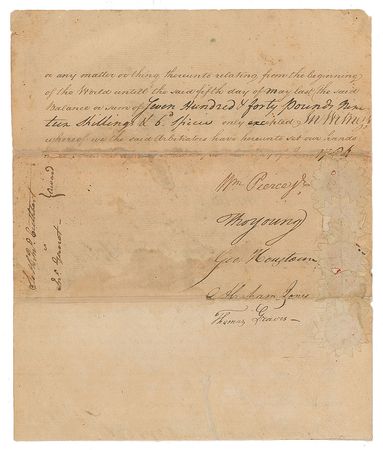 or any matter or thing thereunto relating from the beginning
of the World untill the said fifth day of May last, the said
Balance or sum of Seven Hundred & forty Pounds Nine
teen Shillings & 6d Specie only excepted
whereof we the said Arbitrators have hereunto set our hands
Wm Pierce Jr
Tho Young
Geo Houstoun
Abraham Jones
Thomas Graves